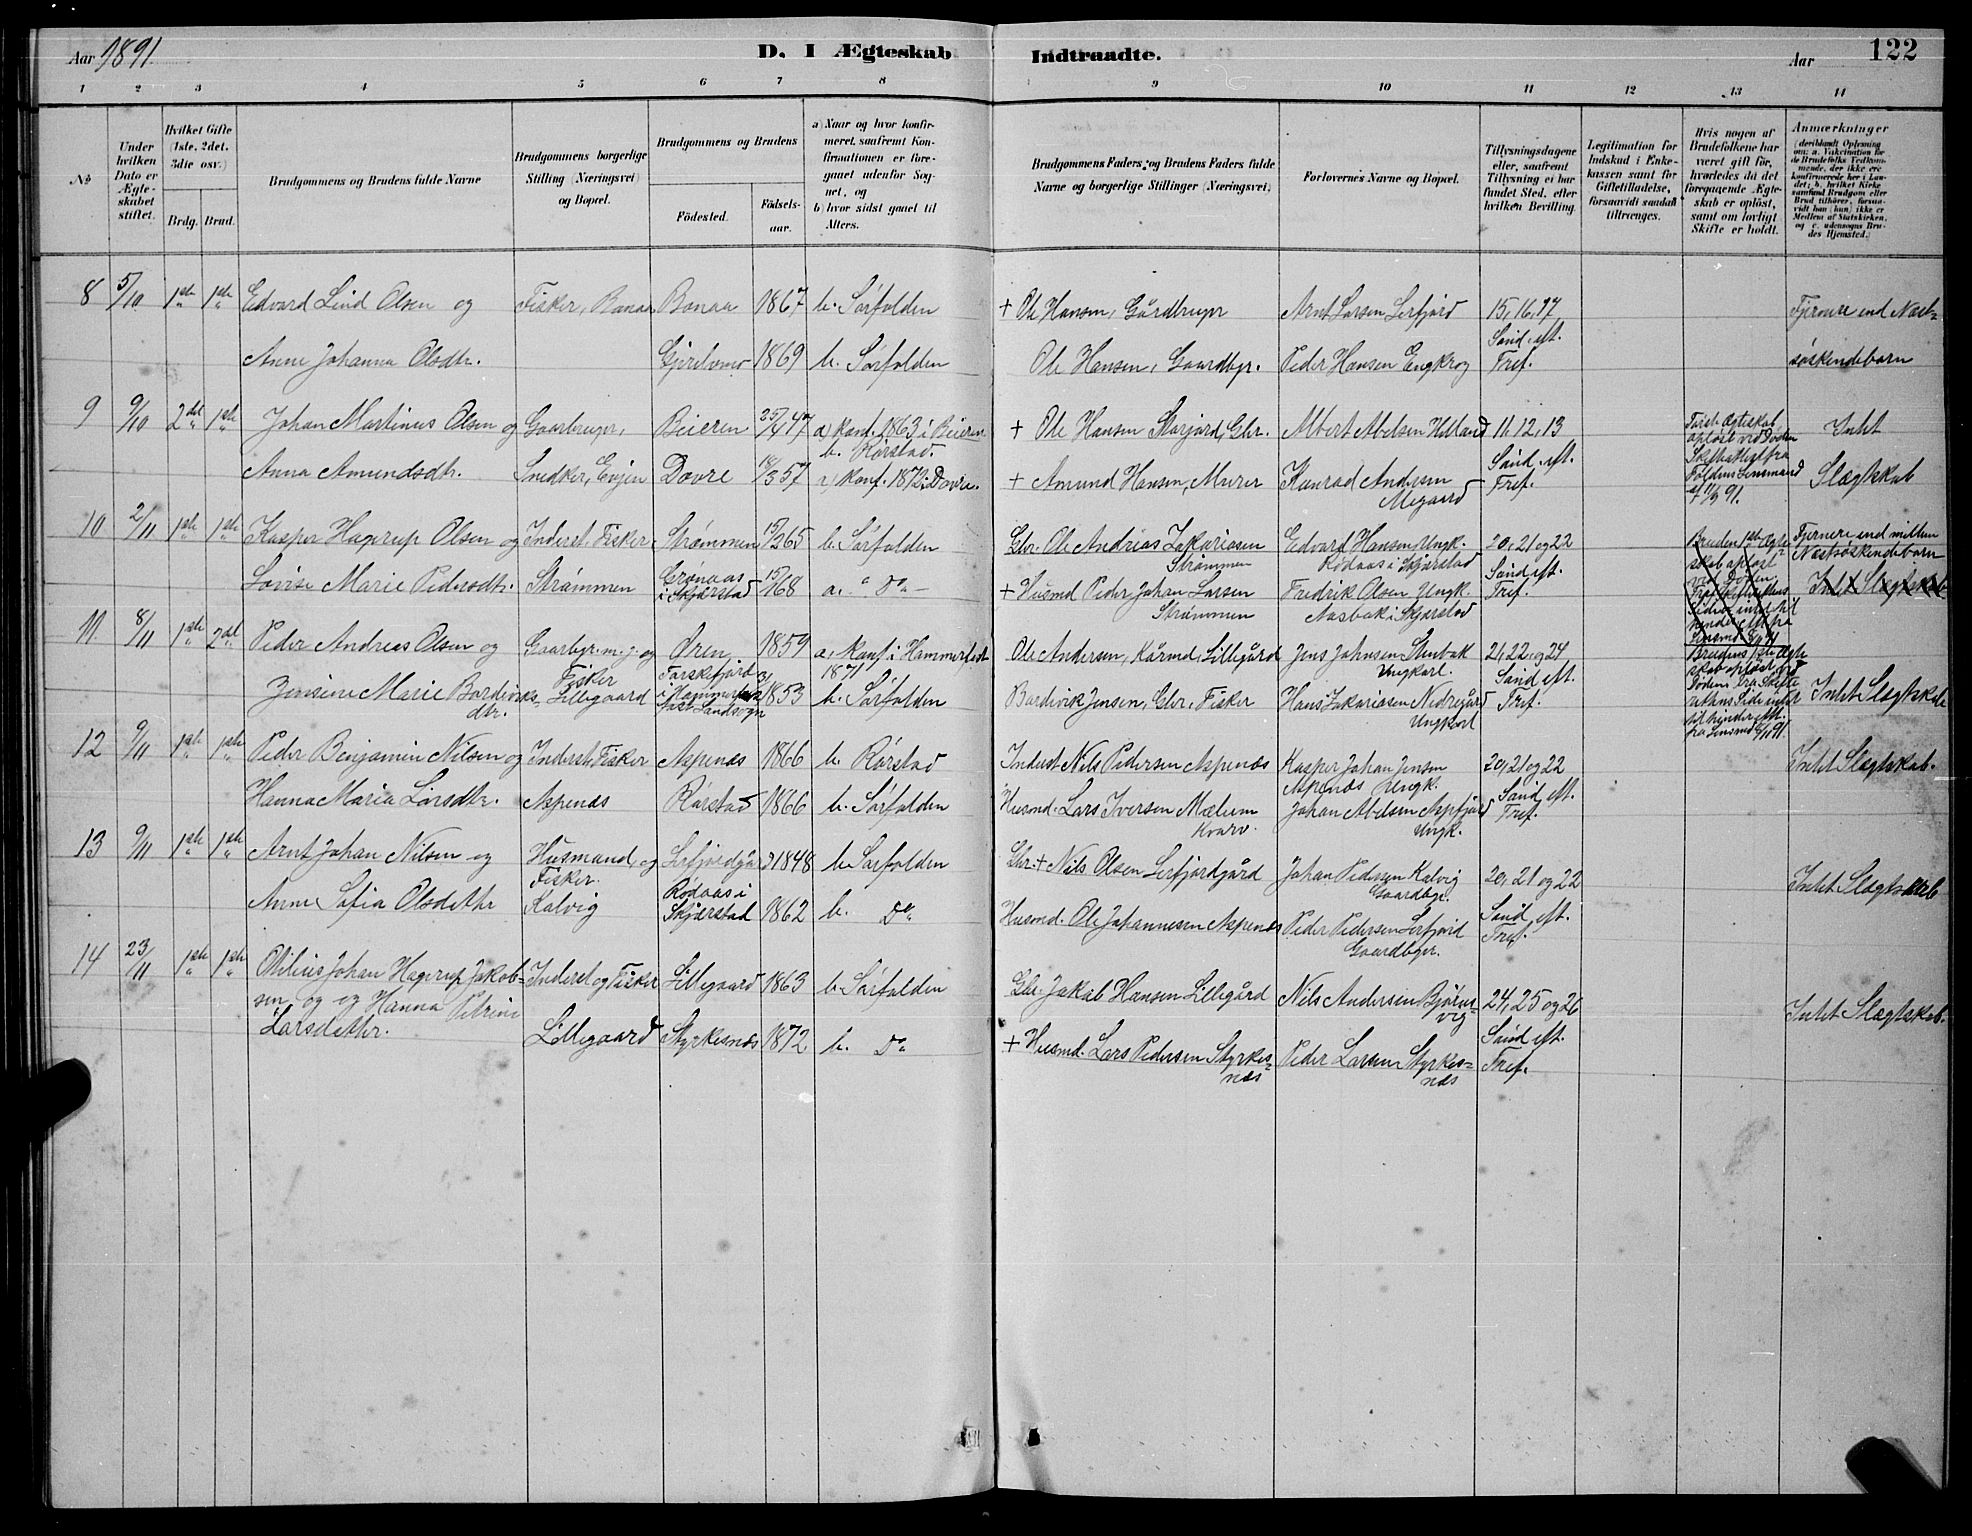 Aar 1891
D. I Ægteskab
Indtraadte.
Aar
122
1 2 3 4 5 6 7 8 9 10 11 12 13 14
No
Under hvilken Dato er Ægteskabet stiftet.
Hvilket Gifte (1ste, 2det, 3die osv.)
Brdg. Brud.
Brudgommens og Brudens fulde Navne
Brudgommens borgerlige Stilling (Næringsvei) og Bopæl.
Brudgommens og Brudens
Fødested.
Fødselsaar.
a) Naar og hvor konfirmeret, saafremt Konfirmationen er foregaaet udenfor Sognet, og
b) hvor sidst gaaet til Alters.
Brudgommens Faders og Brudens Faders fulde Navne og borgerlige Stillinger (Næringsvei)
Forlovernes Navne og Bopæl.
Tillysningsdagene eller, saafremt Tillysning ei har fundet Sted, efter hvilken Bevilling.
Legitimation for Indskud i Enkekassen samt for Giftetilladelse, forsaavidt saadan tiltrænges.
Hvis nogen af Brudefolkene har været gift før, hvorledes da det foregaaende Ægteskab er opløst, samt om lovligt Skifte er holdt.
Anmærkninger (deriblandt Oplysning om: a. Vakcination for de Brudefolks Vedkommende, der ikke ere konfirmerede her i Landet; b. hvilket Kirkesamfund Brudgom eller Brud tilhører, forsaavidt han (hun) ikke er Medlem af Statskirken, og c. udensogns Brudes Hjemsted.)
8 5/10 1ste 1ste Edvard Lind Olsen og Fisker, Bonaa Bonaa 1867 b. Sørfolden + Ole Hansen, Gårdbruger Arnt Larsen Lerfjord 15, 16, 17 Fjernere end Næst-
Anne Johanna Olsdtr. 1869 b. Sørfolden Ole Hansen, Gaardbgr. Peder Hansen Engkrog Sand. eft. Tref. søskendebarn
9 9/10 2det 1ste Johan Martinus Olsen og Gaarbruger, Beieren 25/4 47 a) Konf. 1863 i Beieren b. Rørstad. + Ole Hansen Storjord, Gbr. Albert Abelsen Helland 11, 12, 13 Intet
Anna Amundsdtr. Snedker, Evjen Dovre 18/3 57 a) Konf. 1872 i Dovre. + Amund Hansen, Murer Konrad Andersen Megaard Sand. eft. Tref. Slægtskab
Første Ægteskab opløst ved Døden
10 2/11 1ste 1ste Kasper Hagerup Olsen og Inderst. Fisker Strømmen 15/2 65 b. Sørfolden Gbr. Ole Andreas Zakariasen Strømmen Edvard Hansen, Ungk. Rødaas i Skjerstad 20, 21 og 22 Fjernere end mellem Næstsøskendebarn
Lovise Marie Pedersdtr. Strømmen Grønaas i Skjerstad 68 a. " Do - + Husmd Peder Johan Larsen Strømmen Fredrik Olsen Ungk. Aasbak i Skjerstad Sand eft. Tref. Intet Slægtskab
11 8/11 1ste 2det Peder Andreas Olsen og Gaarbgr. m. j. og Fisker Øren 1859 a. Konf. i Hammerfest 1871 Ole Andersen, Kårmd, Lillegård Jens Johnsen Stenbak Ungkarl. 21, 22, og 24
Jensine Marie Bardiviks-dtr. Lillegaard Torskefjord i Hammerfest Landsogn 1853 b. Sørfolden Bardivik Jensen, Gbr. Fisker Hans Zakariasen Nedregård Ungkarl Sand eft. Tref. Intet Slægtskab
12 9/11 1ste 1ste Peder Benjamin Nilsen og Inderst. Fisker Aspenæs 1866 b. Rørstad Inderst Nils Pedersen Aspenæs Kasper Johan Jensen Aspenæs Ungk. 20, 21 og 22 Intet Slægtskab.
Hanna Maria Larsdtr. Aspenæs Rørstad 1866 b. Sørfolden Husmd. Lars Iversen Mælum Kvarv. Johan Abelsen Aspfjord Ungk. Sand eft. Tref.
13 9/11 1ste 1ste Arnt Johan Nilsen og Husmand, og Fisker. Lerfjordgård 1848 b. Sørfolden Gbr. + Nils Olsen Lerfjordgård Johan Pedersen Kalvig Gaardbgr. 20, 21 og 22 Intet Slægtskab
Anne Sofia Olsdatter Kalvig Rødaas i Skjerstad 1862 b. Do Husmd. Ole Johannesen Aspenæs Peder Pedersen Lerfjord Gaardbger. Sand eft. Tref.
14 23/11 1ste 1ste Otilius Johan Hagerup Jakob- Inderst og Fisker Lillegaard 1863 b. Sørfolden Gbr. Jakob Hansen Lillegård Nils Andersen Bjørns- vig 24, 25 og 26 Intet Slægtskab.
sen og og Hanna Petrine
Larsdatter. Lillegaard Styrkesnæs 1872 b. Do + Husmd. Lars Pedersen Styrkes- næs Peder Larsen Styrkes- næs Sand eft. Tref.